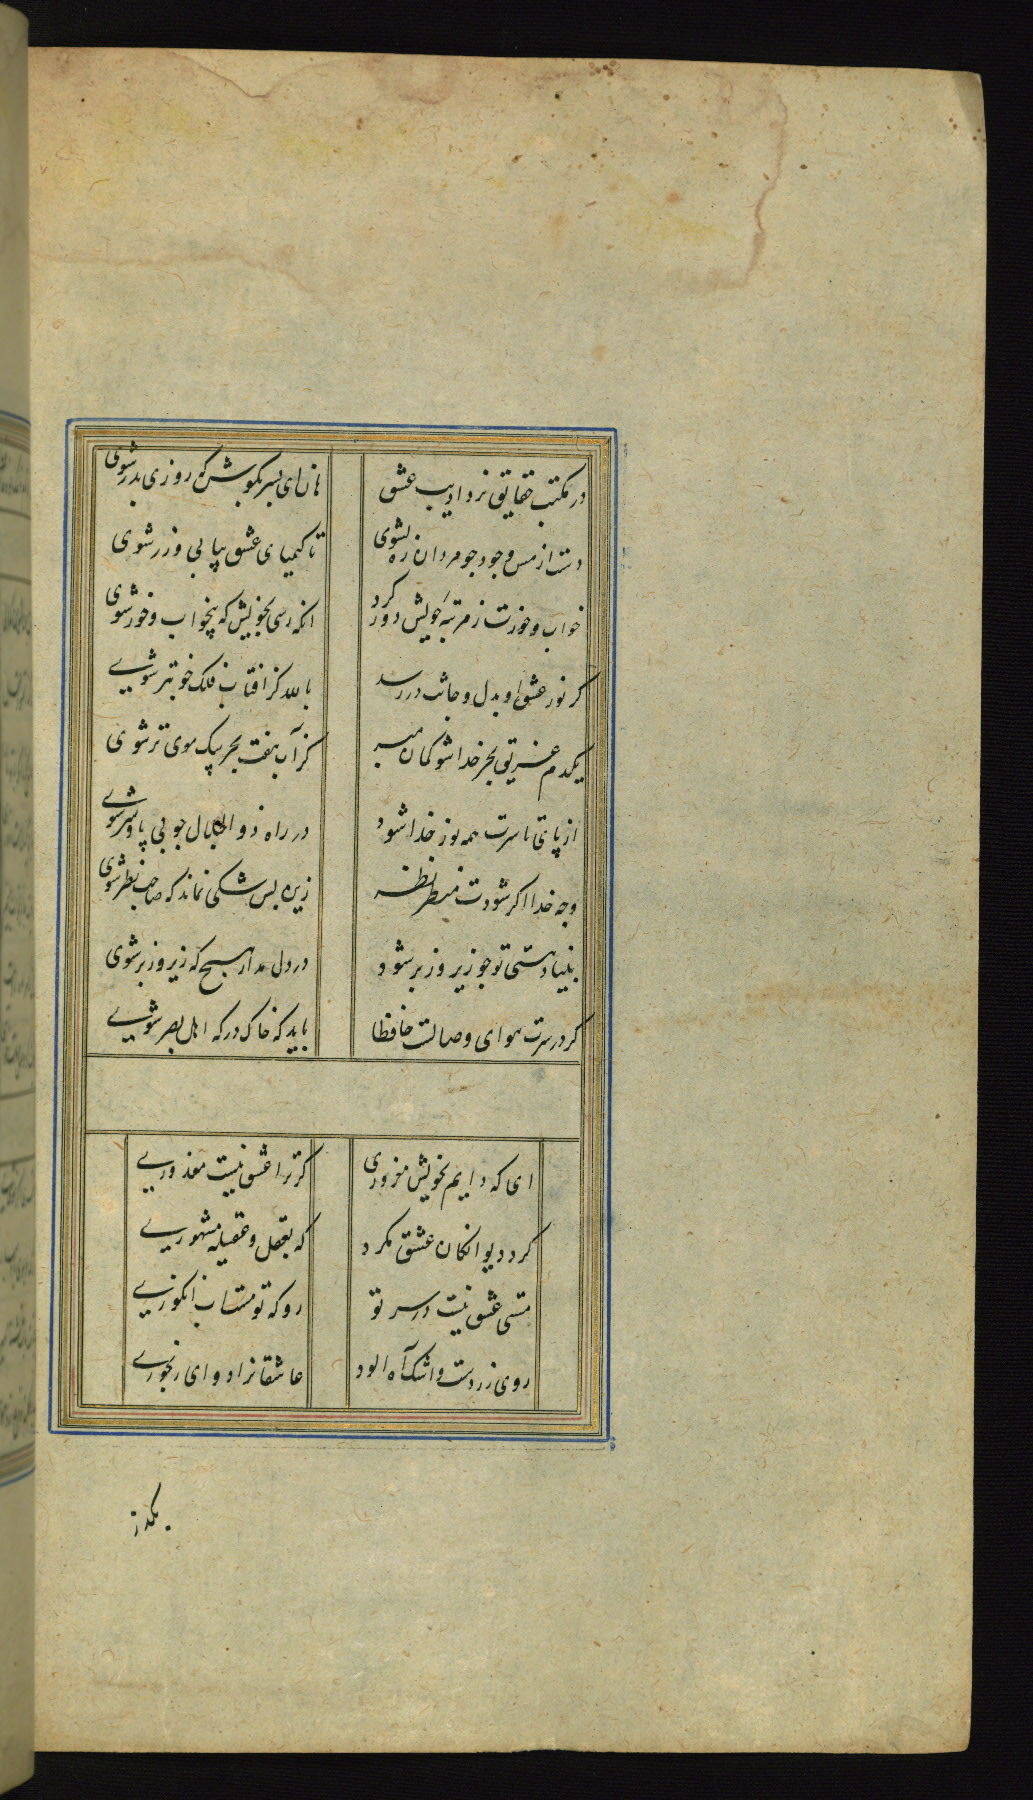 در مکتب حقایق نزد ادیب عشق هان ای پسر بکوش که روزی پدر شوی
دست از مس وجود چو مردان ره بشوی تا کیمیای عشق بیابی و زر شوی
خواب و خورت ز مرتبهٔ خویش دور کرد انکه رسی بخویش که بیخواب و خور شوی
کر نور عشق او بدل و جانت در رسد بالله کز افتاب فلک خوبتر شوی
یکدم غریق بحر خدا شو کمان مبر کز آب هفت بحر بیک موی تر شوی
از پای تا سرت همه نور خدا شود در راه ذوالجلال چو بی پا و سر شوی
وجه خدا اکر شودت منظر نظر زین پس شکی نماند که صاحب نظر شوی
بنیاد هستی تو چو زیر و زبر شود در دل مدار هیچ که زیر و زبر شوی
کر در سرت هوای وصالست حافظا باید که خاک درکه اهل بصر شوی
ای که دایم بخویش مغروری کر ترا عشق نیست معذوری
کرد دیوانکان عشق مکرد که بعقل و عقیله مشهوری
مستی عشق نیست در سر تو رو که تو مست اب انکوری
روی زردست و اشک آه الود عاشقانرا دوای رنجوری
بکذر